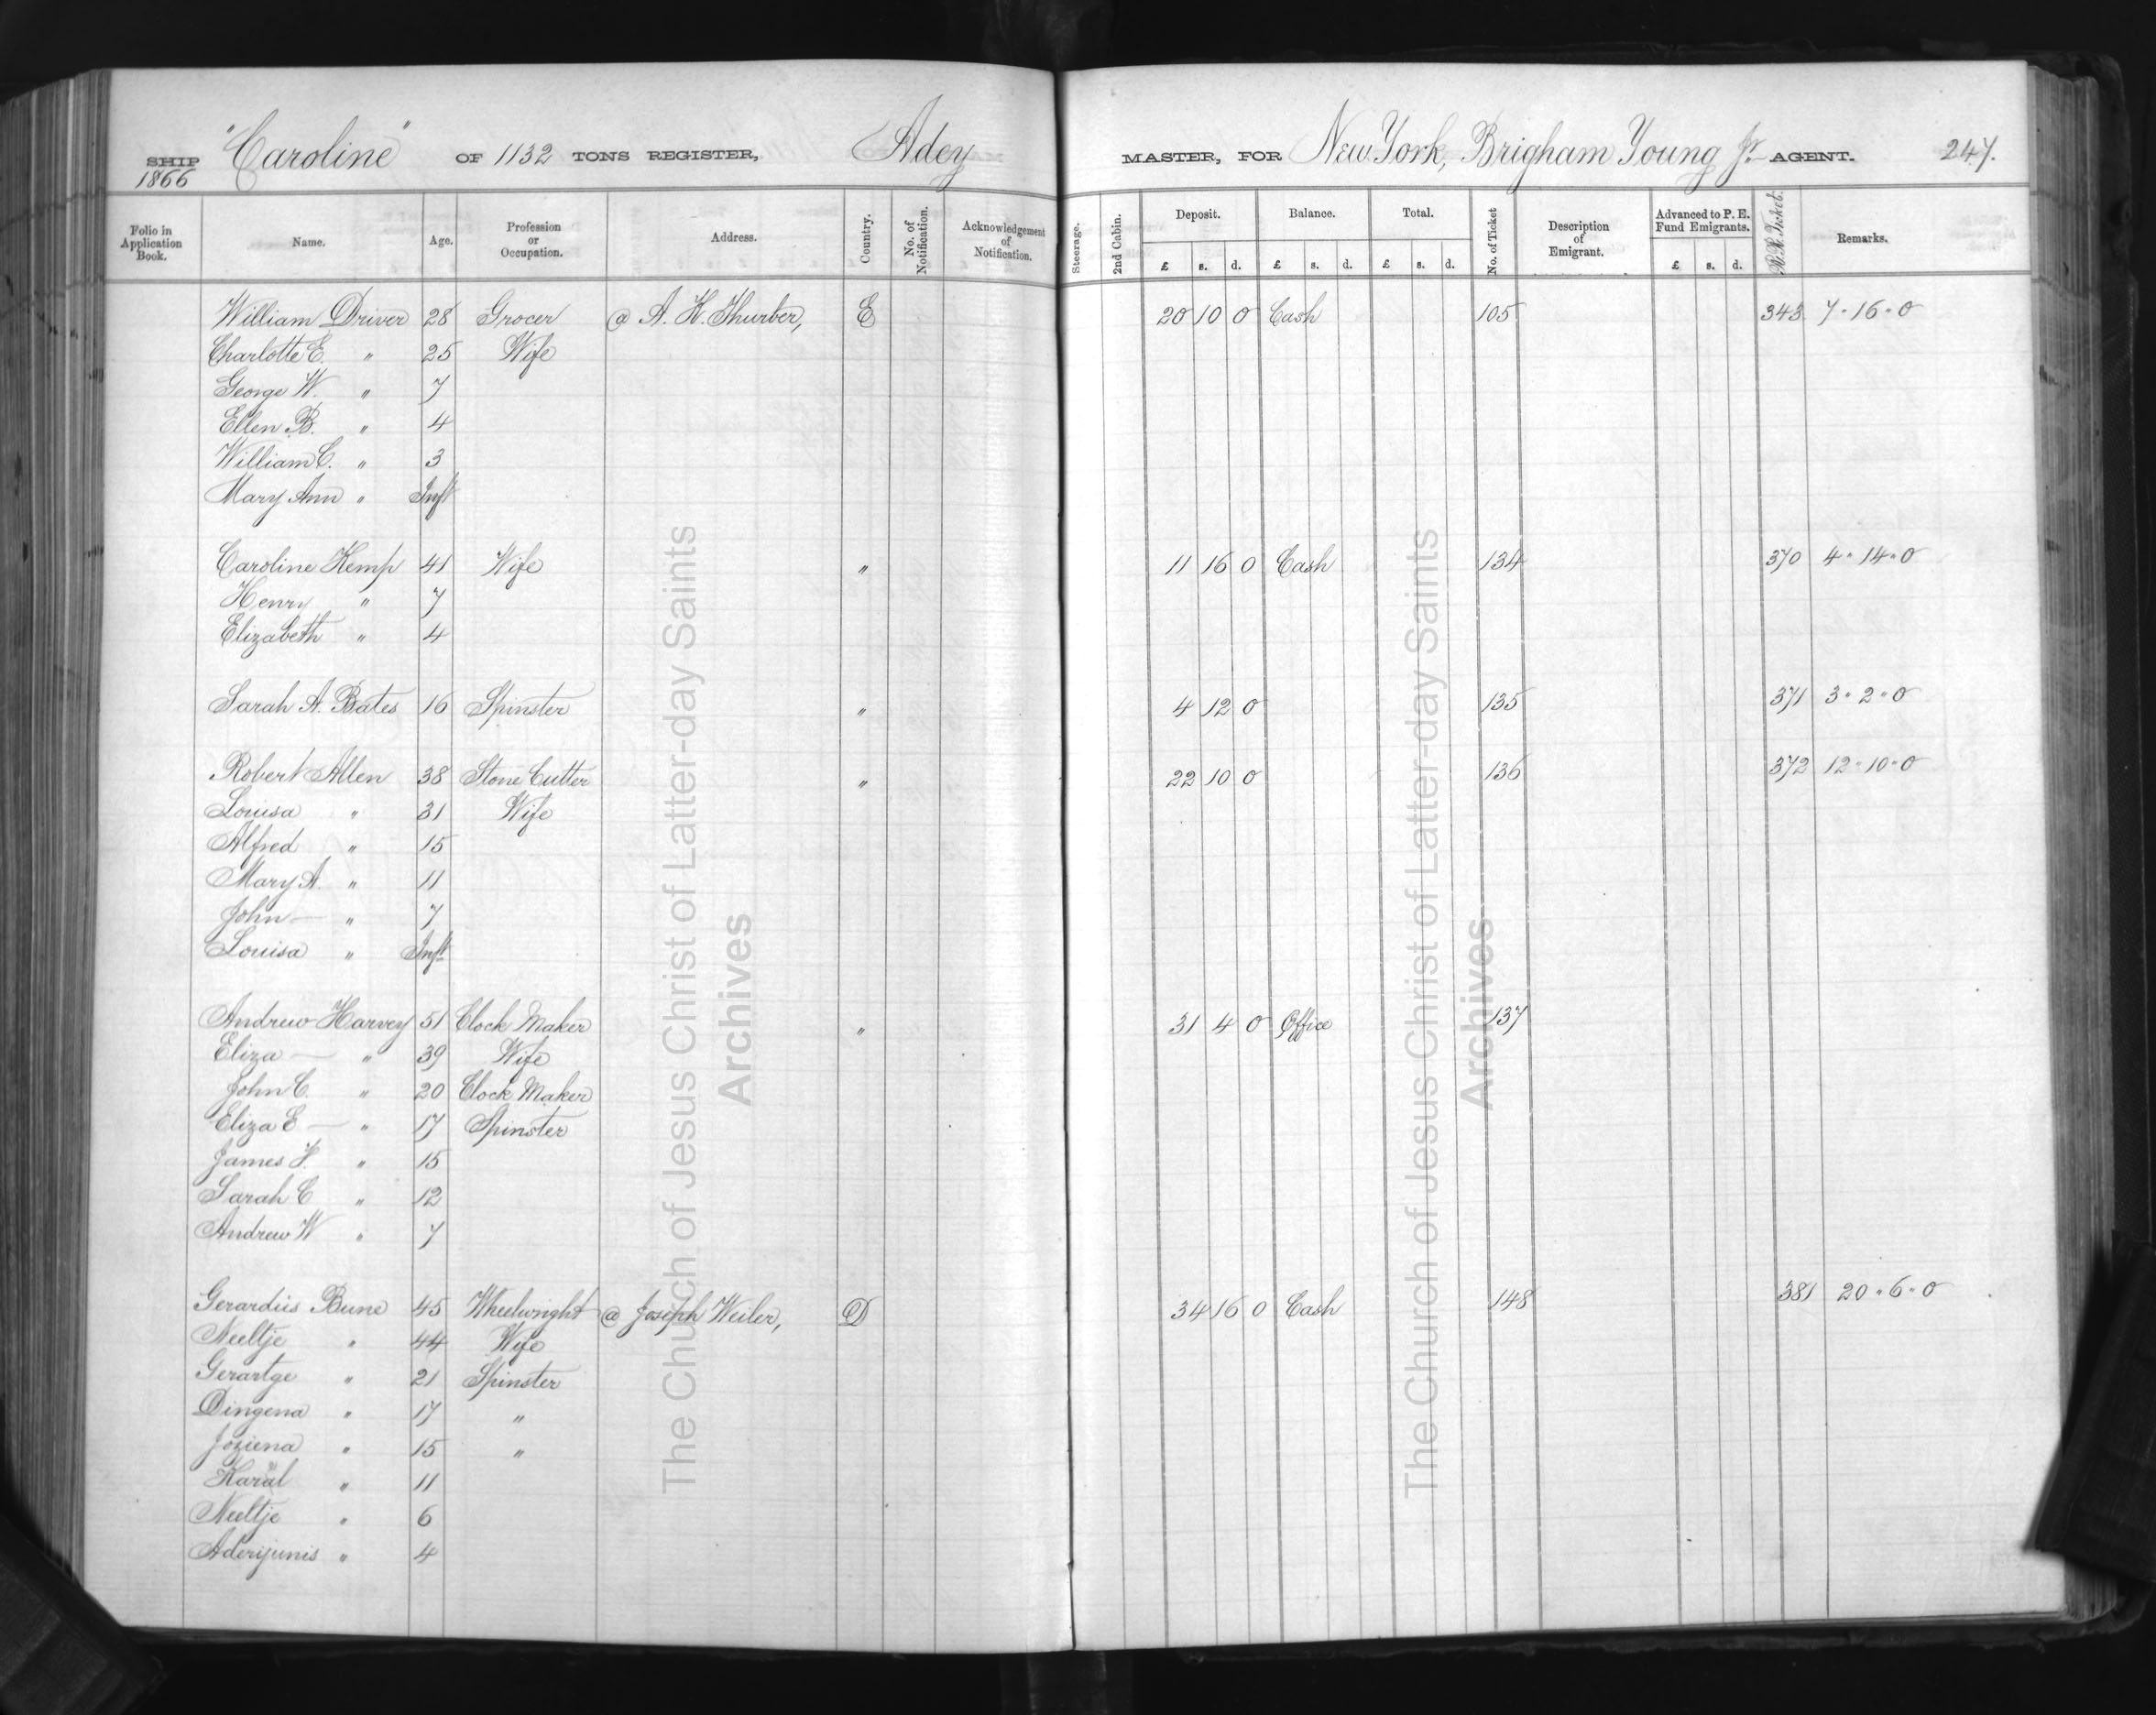 SHIP "Caroline" OF 1132 TONS REGISTER, Adey MASTER, FOR New York, Brigham Young Jr. AGENT. 247.
1866
Folio in Application Book. Name. Age. Profession or Occupation. Address. Country. No. of Notification. Acknowledgement of Notification. Steerage. 2nd Cabin. Deposit. Balance. Total. No. of Ticket Description of Emigrant. Advanced to P. E. Fund Emigrants. R.R. Ticket. Remarks.
£ s. d. £ s. d. £ s. d. £ s. d.
William Driver 28 Grocer @ A. K. Thurber, E 20 10 0 Cash 105 343 7 " 16 " 0
Charlotte E. " 25 Wife
George W. " 7
Ellen B. " 4
William C. " 3
Mary Ann " Inft
Caroline Kemp 41 Wife " 11 16 0 Cash 134 370 4 " 14 " 0
Henry " 7
Elizabeth " 4
Sarah A. Bates 16 Spinster " 4 12 0 135 371 3 " 2 " 0
Robert Allen 38 Stone Cutter " 22 10 0 136 372 12 " 10 " 0
Louisa " 31 Wife
Alfred " 15
Mary A. " 11
John — " 7
Louisa " Inft
Andrew Harvey 51 Clock Maker " 31 4 0 Office 137
Eliza — " 39 Wife
John C. " 20 Clock Maker
Eliza E — " 17 Spinster
James F. " 15
Sarah C " 12
Andrew W " 7
Gerardus Bune 45 Wheelwright @ Joseph Weiler, D 34 16 0 Cash 148 381 20 " 6 " 0
Neeltje " 44 Wife
Gerartge " 21 Spinster
Dingena " 17 "
Joziena " 15 "
Karal " 11
Neeltje " 6
Aderijunis " 4
The Church of Jesus Christ of Latter-day Saints
Archives
The Church of Jesus Christ of Latter-day Saints
Archives